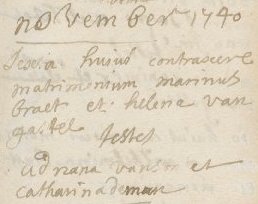 november 1740
huius contraxere
matrimonium marinus
braet et helena van
gastel
testes
adriana van et
catharina deman